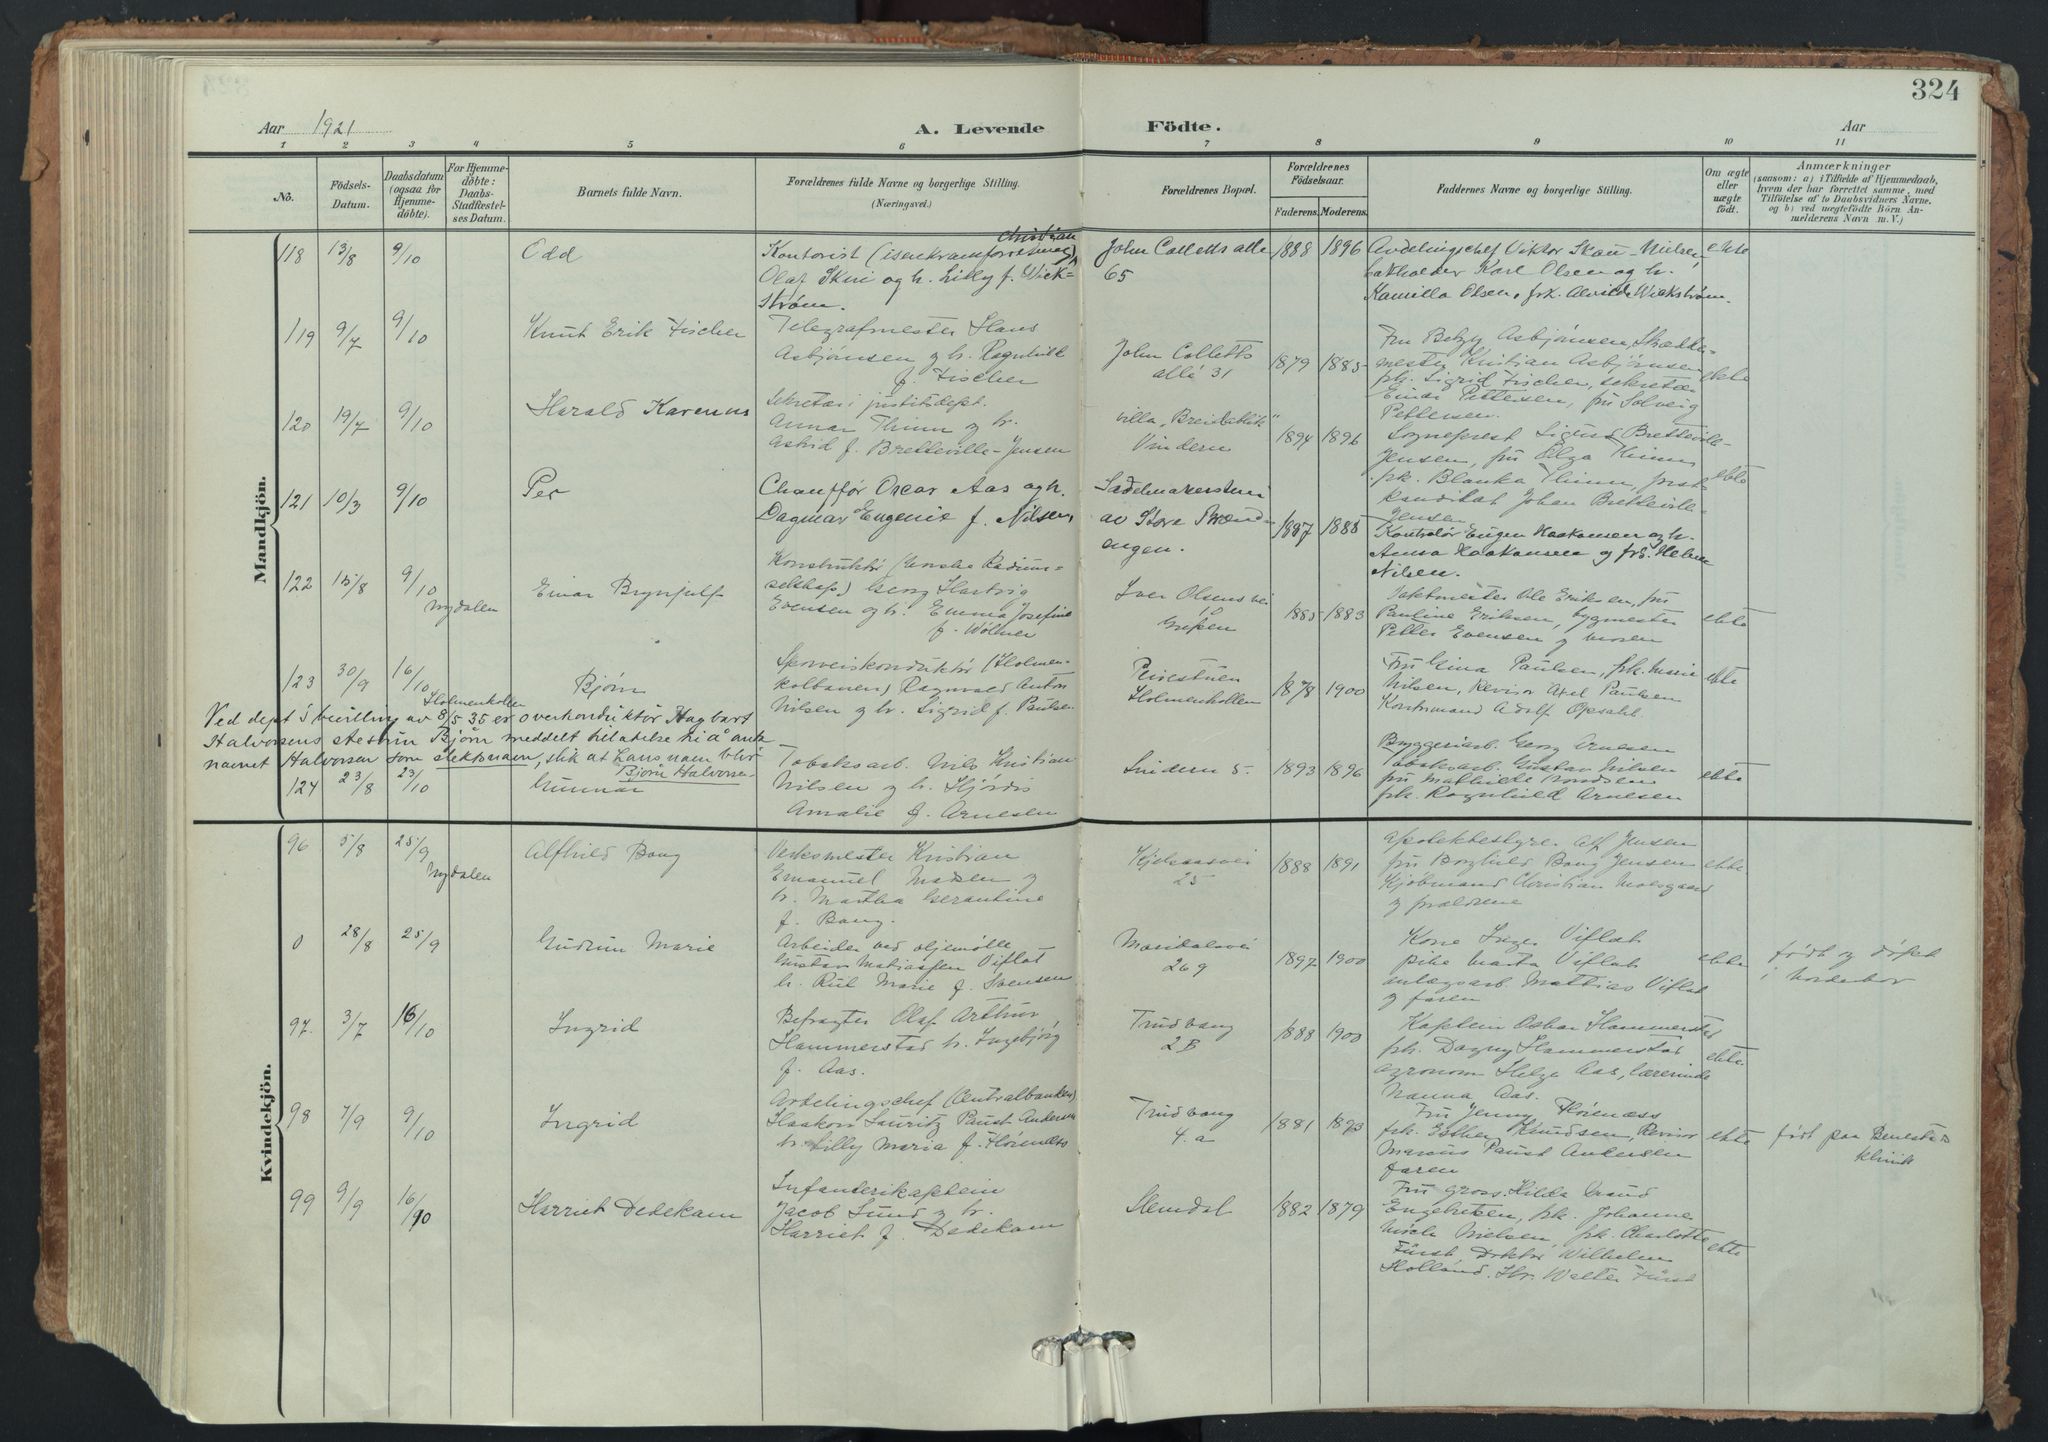 324
Aar 1921
A. Levende Födte.
Aar
1 2 3 4 5 6 7 8 9 10 11
No.
Födsels-
Datum.
Daabsdatum
(ogsaa for
Hjemme-
döbte).
For Hjemme-
döbte:
Daabs-
Stadfæstel-
ses Datum.
Barnets fulde Navn.
Forældrenes fulde Navne og borgerlige Stilling.
(Næringsvei.)
Forældrenes Bopæl.
Forældrenes
Födselsaar.
Faderens. Moderens.
Faddernes Navne og borgerlige Stilling.
Om ægte
eller
uægte
født.
Anmærkninger
(saasom: a) i Tilfælde af Hjemmedaab,
hvem der har forrettet samme, med
Tilföielse af to Daabsvidners Navne.
og b) ved uægtefödte Börn An-
melderens Navn m. V.)
Mandkjön.
118 13/8 9/10 Odd
Christian
Kontorist (isenkramforretning)
Olaf Skui og h. Lilly f. Wick-
strøm.
John Colletts alle
65
1888 1896
Avdelingschef Viktor Skau-Nielsen
Karl Olsen og h.
Kamilla Olsen, frk. Alvilde Wickstrøm.
ekte
119 9/7 9/10 Knut Erik Fischer
Telegrafmester Hans
Asbjønsen og h. Ragnhild
f. Fischer
John Colletts
allé 31
1879 1885
Fru Betzy Asbjønsen, Skrædder-
mester Kristian Asbjønsen
frk. Sigrid Fischer, sekretær
Einar Pettersen, fru Solveig
Pettersen.
ekte
120 19/7 9/10 Harald Karenus
Sekretær i justitsdept.
Annar Thinn og h.
Astrid f. Bretteville-Jensen
villa "Breidablik"
Vindern
1894 1896
Sogneprest Sigurd Bretteville-
Jensen, fru Elga Thinn
frk. Blanka Thinn, prest
kandidat Johan Bretteville-
Jensen
ekte
121 10/3 9/10 Per
Chauffør Oscar Aas og h.
Dagmar Eugenie f. Nilsen,
Sadelmakerstuen
av Store Brænd-
engen.
1887 1888
Kontrolør Eugen Haakonsen og h.
Anna Haakonsen og frk. Helene
Nilsen.
122 15/8 9/10 Einar Brynjulf
Nydalen
Konstruktør (norske Radium-
selskap) Georg Hartvig
Evensen og h. Emma Josefine
f. Wølner
Iver Olsens vei
Grefsen
1885 1883
Taktmester Ole Eriksen, fru
Pauline Eriksen, bygmester
Petter Evensen og moren
ekte
123 30/9 16/10 Bjørn
Holmenkollen
Sporveiskonduktør (Holmen-
kolbanen) Ragnvald Anton
Nilsen og h. Sigrid f. Paulsen
Peisestuen
Holmenkollen
1878 1900
Fru Gina Paulsen, frk. Marie
Nilsen, Revisor Axel Paulsen
Kontormand Adolf Opsahl.
ekte
Ved dept's bevilling av 8/5 35 er overkonduktør Hagbart
Halvorsens stesønn Bjørn meddelt tillatelse til å anta
navnet Halvorsen som slektsnavn, slik at hans navn blir
Bjørn Halvorsen
124 23/8 23/10 Gunnar
Tobaksarb. Nils Kristian
Nilsen og h. Hjørdis
Amalie f. Arnesen
Vindern 5.
1893 1896
Bryggeriarb. Georg Arnesen
tobaksarb. Gustav Nilsen
fru Mathilde
frk. Ragnhild Arnesen
ekte
Kvindekjön.
96 5/8 25/9 Alfhild Bang
Nydalen
Verksmester Kristian
Emanuel Madsen og
h. Martha Gerantine
f. Bang.
Kjelsaasvei
25
1888 1891
apotekbestyrer Alf Jensen
fru Borghild Bang Jensen
Kjøbmand Christian Molsgaard
og forældrene
ekte
0 28/8 25/9 Gudrun Marie
Arbeider ved oljemølle
Gustav Matiassen Viflat
h. Rut Marie f. Svensen
Maridalsvei
269
1897 1900
Kone Inga Viflat
pike Marta Viflat
anlægsarb. Mattias Viflat
og faren
ekte
født og døpt
i Norderhov
97. 3/7 16/10 Ingrid
Befragter Olaf Arthur
Hammerstad h. Ingebjørg
f. Aas.
Trudvang
2B
1888 1900
Kaptein Oskar Hammerstad
frk. Dagny Hammerstad
agronom Helge Aas, lærerinde
Nanna Aas.
ekte
98 7/9 9/10 Ingrid
Avdelingschef (Centralbanken)
Haakon Lauritz Paust Andersen
h. Lilly Maria f. Høienæss
Trudvang
4. a
1881 1893
Fru Jenny Høienæss
frk. Esther Knudsen, Revisor
Marius Paust Andersen
faren
ekte
født paa
klinik
99 9/9 16/10 Harriet Dedekam
Infanterikaptein
Jacob Lund og h.
Harriet f. Dedekam
Slemdal
1882 1879
Fru gross. Hilda
Engebretsen, frk. Johanne
Nielsen, frk. Charlotte
Fürst, Doktor Wilhelm
Holland, Hr. Walter Fürst
ekte